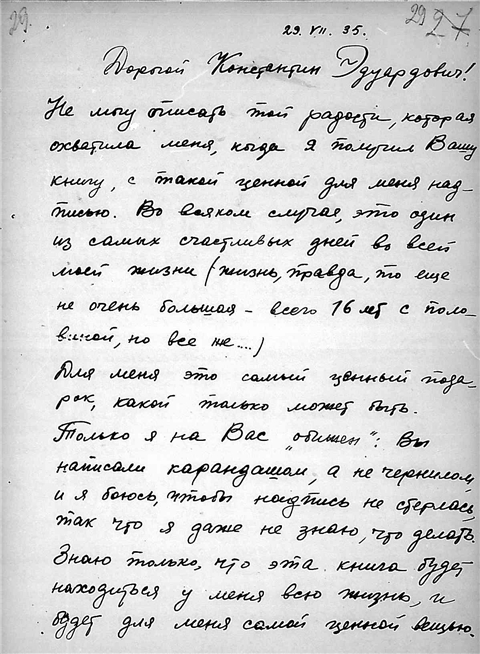 29.
29 27
29.VII.35.
Дорогой Константин Эдуардович!
Не могу описать той радости, которая
охватила меня, когда я получил Вашу
книгу, с такой ценной для меня над-
писью. Во всяком случае, это один
из самых счастливых дней во всей
моей жизни (жизнь, правда, то еще
не очень большая – всего 16 лет с поло-
виной, но все же....)
Для меня это самый ценный пода-
рок, какой только может быть.
Только я на Вас „обижен“: Вы
написали карандашом, а не чернилом,
и я боюсь, чтобы надпись не стерлась,
так что я даже не знаю, что делать.
Знаю только, что эта книга будет
находиться у меня всю жизнь, и
будет для меня самой ценной вещью.